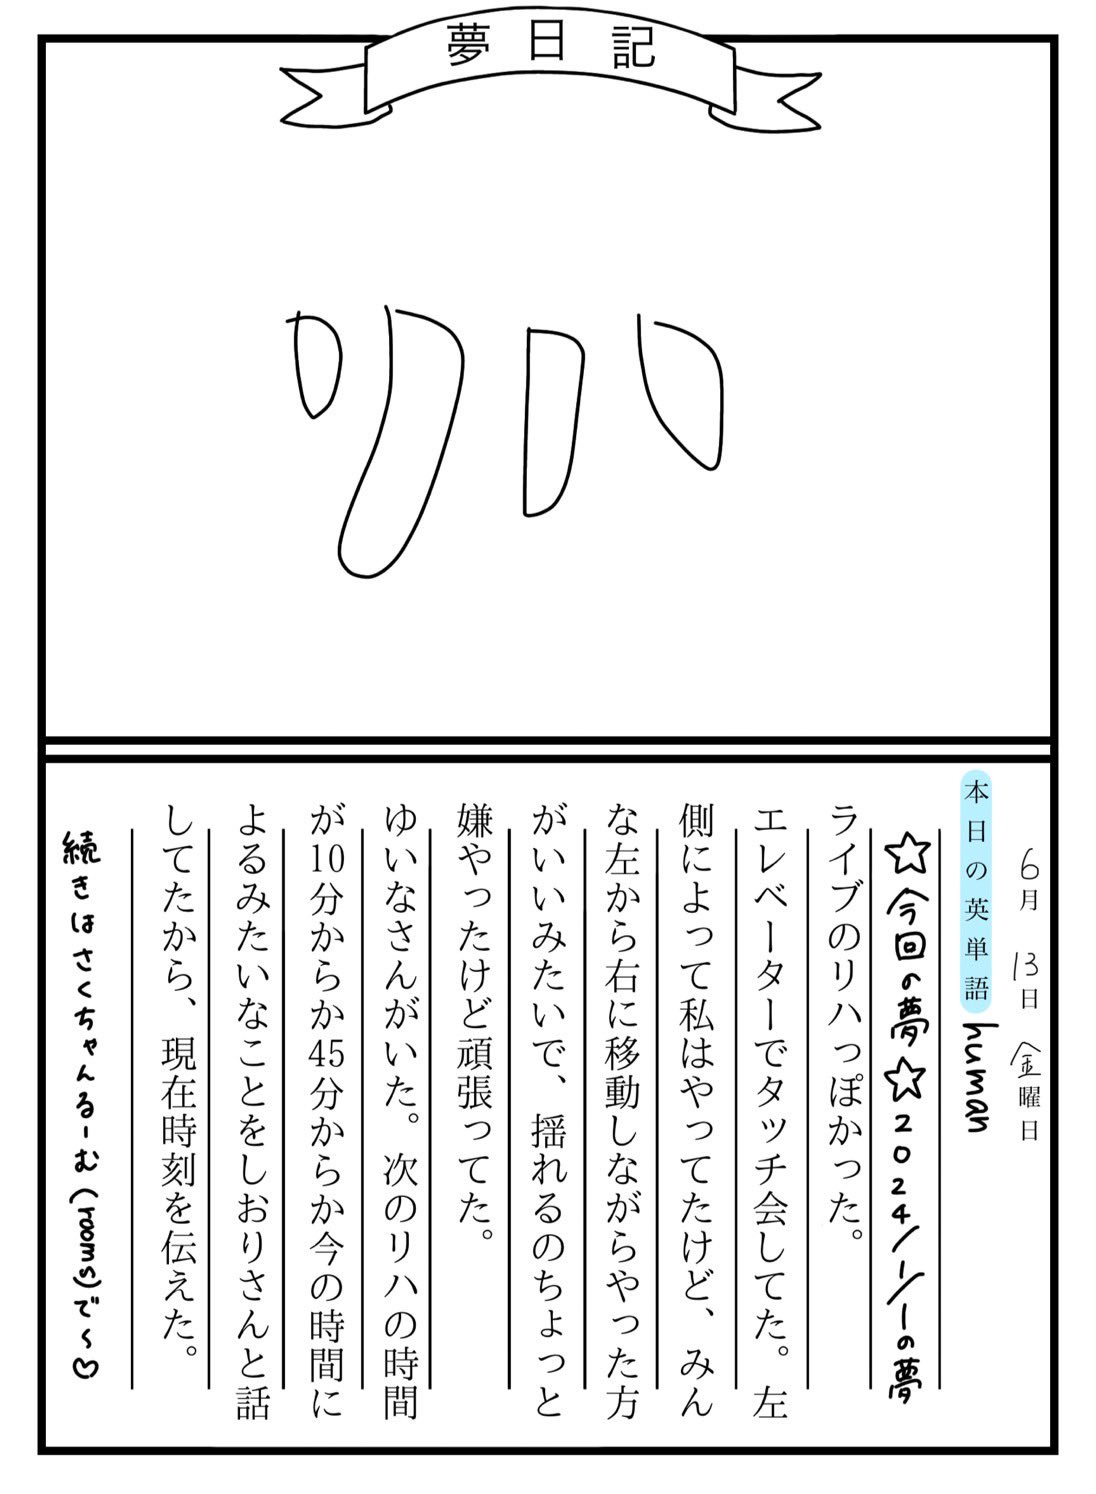 夢日記
リハ
6月 13日 金曜日
本日の英単語 human
☆今回の夢☆2024/1/1の夢
ライブのリハっぽかった。
エレベーターでタッチ会してた。左
側によって私はやってたけど、みん
な左から右に移動しながらやった方
がいいみたいで、揺れるのちょっと
嫌やったけど頑張ってた。
ゆいなさんがいた。次のリハの時間
が10分からか45分からか今の時間に
よるみたいなことをしおりさんと話
してたから、現在時刻を伝えた。
続きはさくちゃんるーむ(rooms)で〜♡